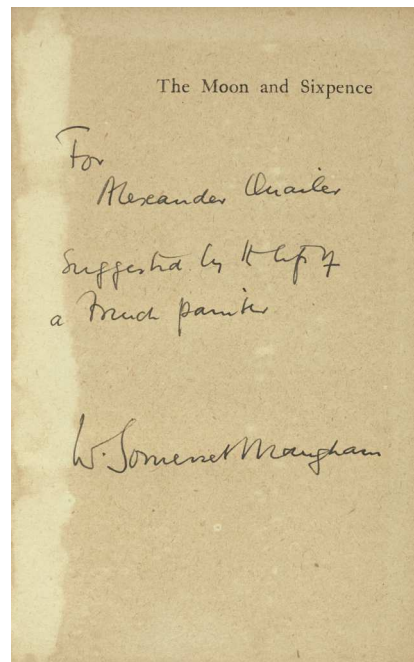 The Moon and Sixpence
For
Alexander Quailer
Suggested by the life of
a French painter
W. Somerset Maugham